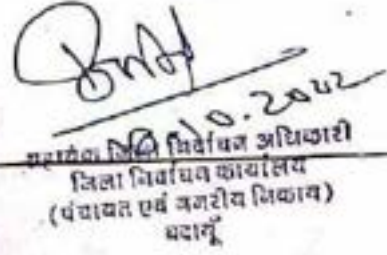 10.2022
सहायक जिला निर्वाचन अधिकारी
जिला निर्वाचन कार्यालय
(पंचायत एवं नगरीय निकाय)
बदायूँ